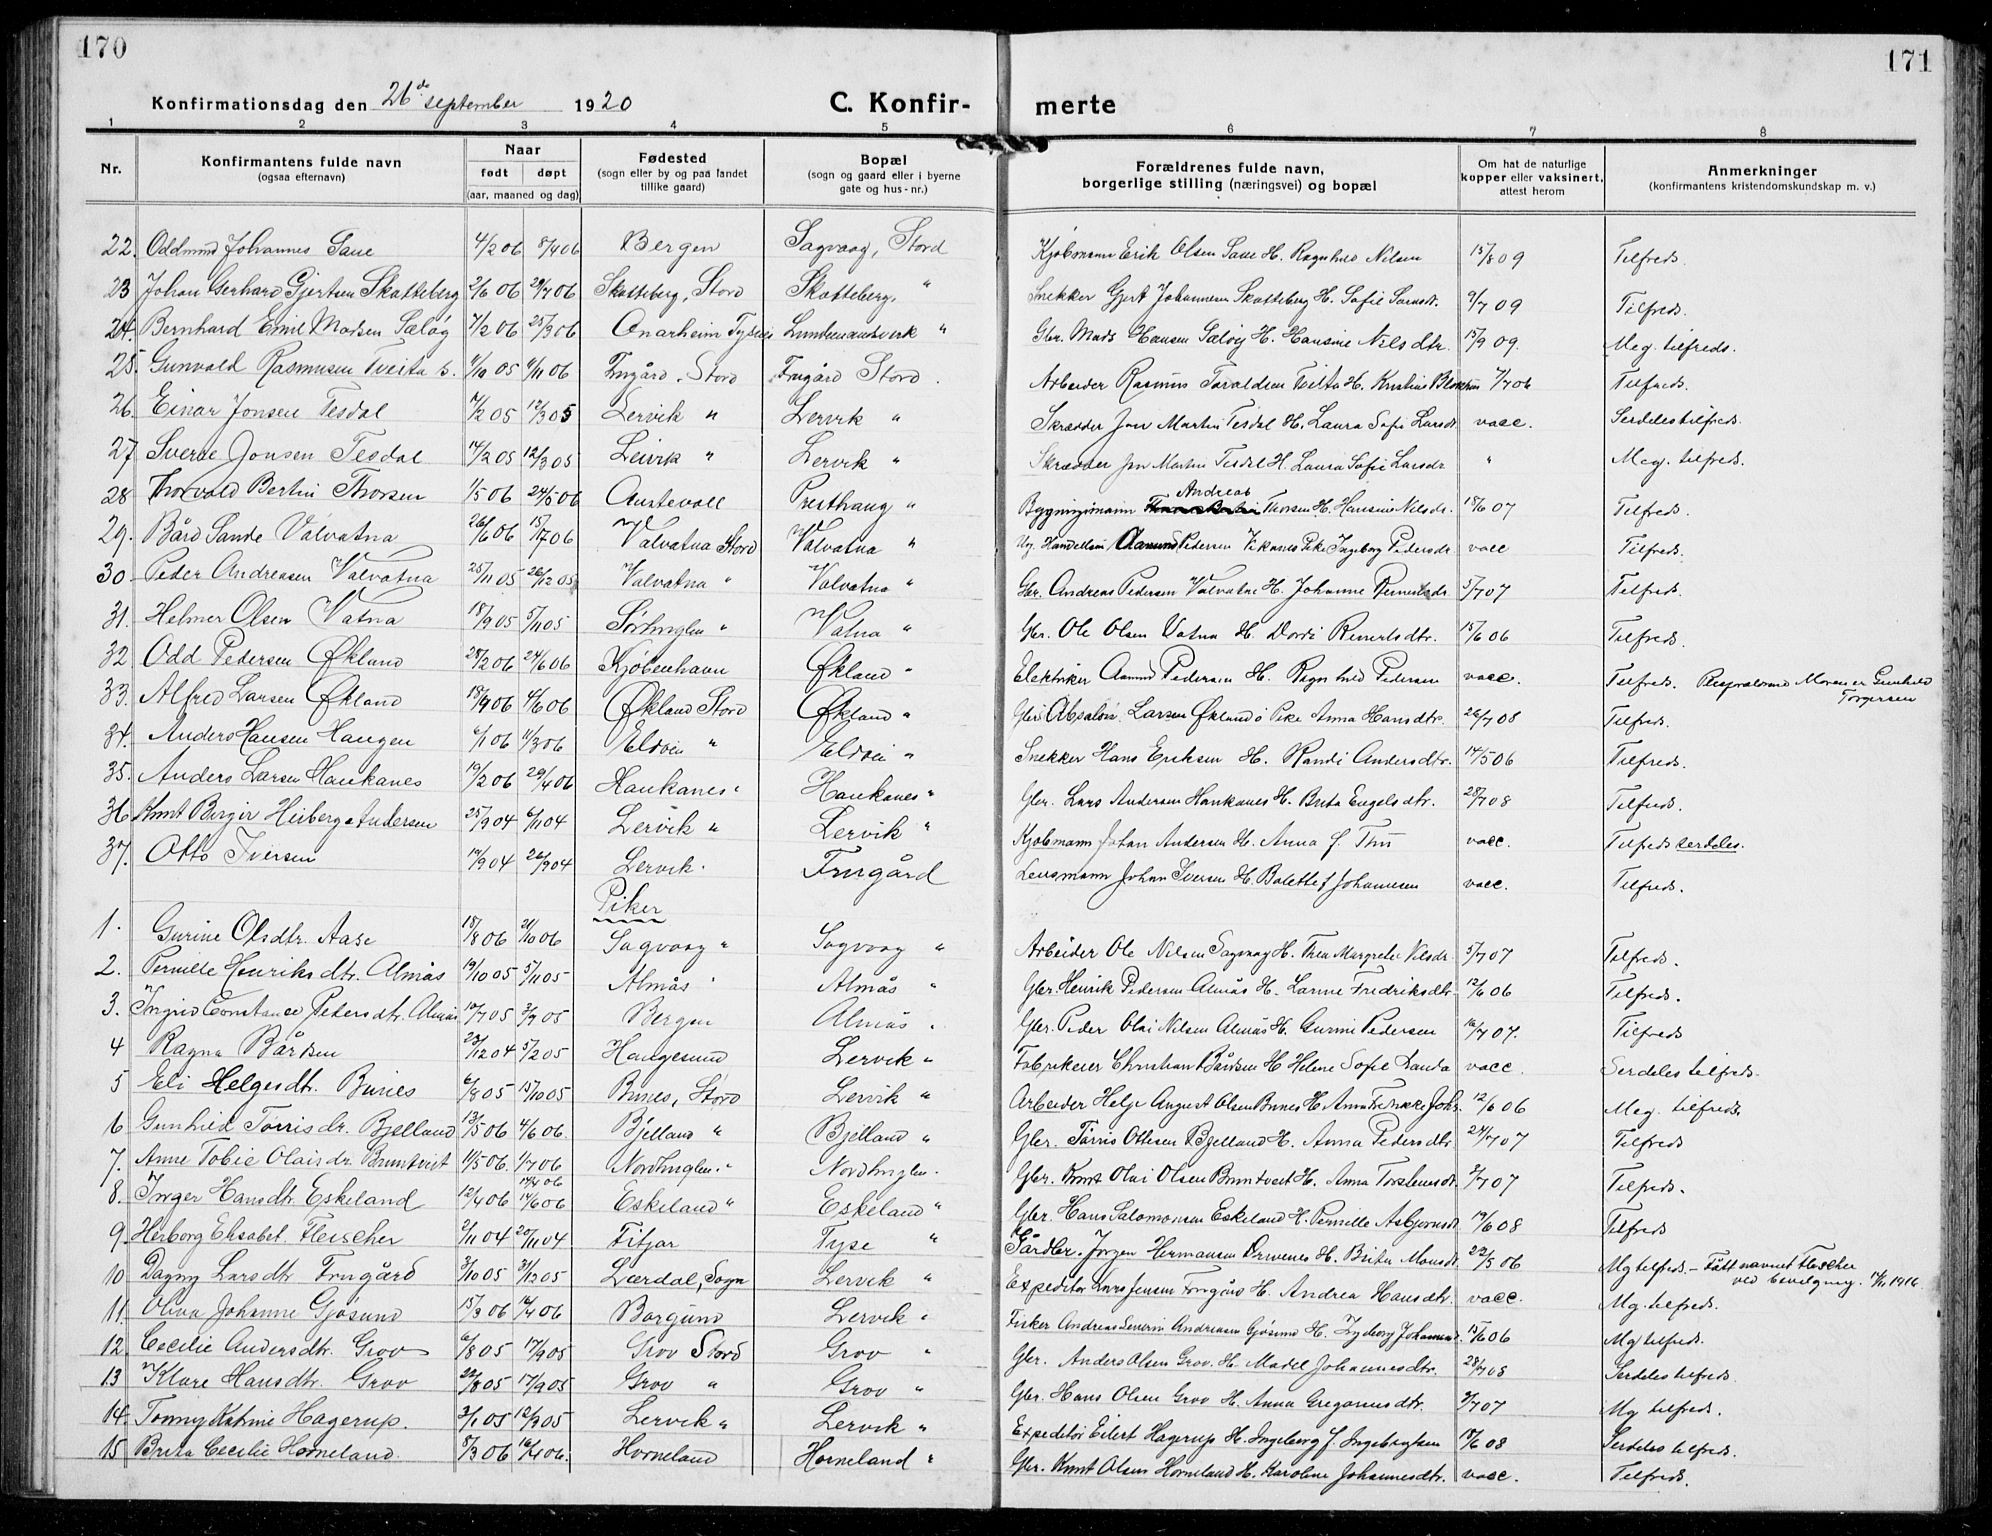 170
171
Konfirmationsdag den 26de september 1920
C. Konfir-
merte
1 2 3 4 5 6 7 8
Nr.
Konfirmantens fulde navn
(ogsaa efternavn)
Naar
født døpt
(aar, maaned og dag)
Fødested
(sogn eller by og paa landet
tillike gaard)
Bopæl
(sogn og gaard eller i byerne
gate og hus-nr.)
Forældrenes fulde navn,
borgerlige stilling (næringsvei) og bopæl
Om hat de naturlige
kopper eller vaksinert,
attest herom
Anmerkninger
(konfirmantens kristendomskundskap m. v.)
22. Oddmund Johannes Saue 4/2 06 8/4 06 Bergen Sagvaag, Stord Kjøbmann Erik Olsen Saue H. Ragnhild Nilsen 15/8 09 Tilfreds.
23 Johan Gerhard Gjertsen Skatteberg 2/6 06 29/7 06 Skatteberg, Stord Skatteberg, " Snekker Gjert Johannesen Skatteberg H. Sofie Larsdtr. 9/7 09 Tilfreds.
24. Bernhard Emil Madsen Sæløg 7/2 06 25/3 06 Onarheim Tysnes " Gbr. Mads Hansen Sæløg H. Hansine Nilsdtr. 15/9 09. Meg. tilfreds.
25. Gunvald Rasmusen Tveita 05 06 Frugård, Stord Frugård Stord. Arbeider Rasmus Taraldsen Tveita H. Kristine 7/7 06 Tilfreds.
26. Einar Jonsen Tesdal 7/2 05 12/3 05 Lervik " Lervik " Skrædder Jon Martin Tesdal H. Laura Sofie Larsdt vacc. Serdeles tilfreds.
27 Sverre Jonsen Tesdal 14/2 05 12/3 05 Leivik " Lervik " Skrædder Jon Martin Tesdal H. Laura Sofie Larsdr " Meg. tilfreds.
28 Thorvald Bertin Thorsen 1/5 06 24/5 06 Austevoll Presthaug " Bygningsmann Andreas Thorsen H. Hansine Nilsdr. 18/6 07 Tilfreds.
29. Bård Sande Valvatna 26/6 06 15/7 06 Valvatna Stord Valvatna " Ug. Aamund Pedersen Vikanes Pike Ingeborg Pedersdr vacc Tilfreds.
30. Peder Andreasen Valvatna 25/11 05 26/12 05 Valvatna " Valvatna " Gbr. Andreas Pedersen Valvatna H. Johanne 5/7 07 Tilfreds.
31. Helmer Olsen Vatna 18/9 05 5/11 05 Sørhuglen " Vatna " Gbr. Ole Olsen Vatna H. Dordi Reinertsdtr. 15/6 06 Tilfreds.
32 Odd Pedersen Økland 28/2 06 24/6 06 Kjøbenhavn Økland " Elektriker Aamund Pedersen H. Ragnhild Pedersen vacc. Tilfreds. Moren er Gunhild Torgersen
33. Alfred Larsen Økland 18/4 06 4/6 06 Økland Stord Økland " Absalon Larsen Økland o Pike Anna Hansdtr. 26/7 08 Tilfreds.
34. Anders Hansen Haugen 6/1 06 11/3 06 Eldøi " Eldøi " Snekker Hans Eriksen H. Randi Andersdtr. 14/5 06 Tilfreds.
35. Anders Larsen Haukanes 19/2 06 29/4 06 Haukanes " Haukanes " Gbr. Lars Andersen Haukanes H. Brita Engelsdtr. 28/7 08 Tilfreds.
36 Knut Birger Heiberg Andersen 25/9 04 6/11 04 Lervik " Lervik " Kjøbmann Johan Andersen H. Anna f. Thu vacc. Tilfreds serdeles.
37. Otto Iversen 19/9 04 26/9 04 Lervik. Frugård Lensmann Johan Iversen H. Bolette f Johannesen vacc. Tilfreds.
Piker
1. Gurine Olsdtr. Aase 18/8 06 21/10 06 Sagvaag " Sagvaag " Arbeider Ole Nilsen Sagvaag H. Thea Margrete Nilsdr. 5/7 07 Tilfreds.
2. Pernille Henriksdtr. Almås 19/10 05 5/11 05 Almås " Almås " Gbr. Henrik Pedersen Almås H. Larine Fredriksdtr. 12/6 06 Tilfreds.
3. Ingrid Constance Pedersdtr. Almås 10/7 05 3/9 05 Bergen Almås " Gbr. Peder Olai Nilsen Almås H. Gurini Pedersen 16/7 07. Tilfreds
4 Ragna Bårdsen 23/12 04 5/2 05 Haugesund Lervik " Fabrikeier Christian Bårdsen H Helene Sofie Landa vacc. Serdeles tilfreds.
5 Eli Helgesdtr. Bunes 6/8 05 15/10 05 Bunes, Stord Lervik " Arbeider Helge August Olsen Bunes H. Anna Fredrikke Joh. 12/6 06 Meg. tilfreds.
6 Gunhild Tørrisdr. Bjelland 13/5 06 4/6 06. Bjelland " Bjelland " Gbr. Tørris Ottesen Bjelland H. Anna Pedersdtr 24/7 07 Tilfreds
7. Anne Tobie Olaisdr. Bruntveit 11/5 06. 1/7 06 Nordhuglen " Nordhuglen. Gbr. Knut Olai Olsen Bruntveit H. Anna Torstensdt. 2/7 07 Tilfreds.
8. Inger Hansdtr. Eskeland 12/4 06 14/6 06 Eskeland " Eskeland " Gbr. Hans Salomonsen Eskeland H. Pernille Asbjørnsdt. 19/6 08 Tilfreds
9. Herborg Elisabet Fleischer 2/11 04 20/11 04 Fitjar Tyse " Gårdbr. Jørgen Hermansen H. Brita Monsdt. 22/5 06 Mg tilfreds. - Fått navnet Fleischer ved bevilgning. 1916
10 Dagny Larsdtr Frugård 3/10 05 31/12 05 Lærdal, Sogn Lervik " Expeditør Lars Jensen Frugård H. Andrea Hansdtr. vacc. Mg. tilfreds.
11. Oliva Johanne Gjøsund 15/3 06 16/4 06 Borgund Lervik " Fisker Andreas Severin Andreasen Gjøsund H. 15/6 06 Mg tilfreds.
12. Cecilie Andersdtr. Grov 6/8 05 17/9 05 Grov Stord Grov " Gbr. Anders Olsen Grov. H. Madel Johannesdtr. 28/7 08 Serdeles tilfreds.
13 Klare Hansdtr. Grov 22/8 05 17/9 05 Grov " Grov " Gbr. Hans Olsen Grov H. Anna Gregoriusdtr. 2/7 07 Mg tilfreds.
14. Tonny Katrine Hagerup. 3/1 05 12/3 05 Lervik " Lervik " Expeditør Eilert Hagerup H. Ingeborg f. Ingebrigtsen 18/6 08 Serdeles tilfreds.
15 Brita Cecilie Horneland. 8/3 06 16/4 06. Horneland Horneland " Gbr. Knut Olsen Horneland H. Karoline Johannesdtr. vacc. Tilfreds.